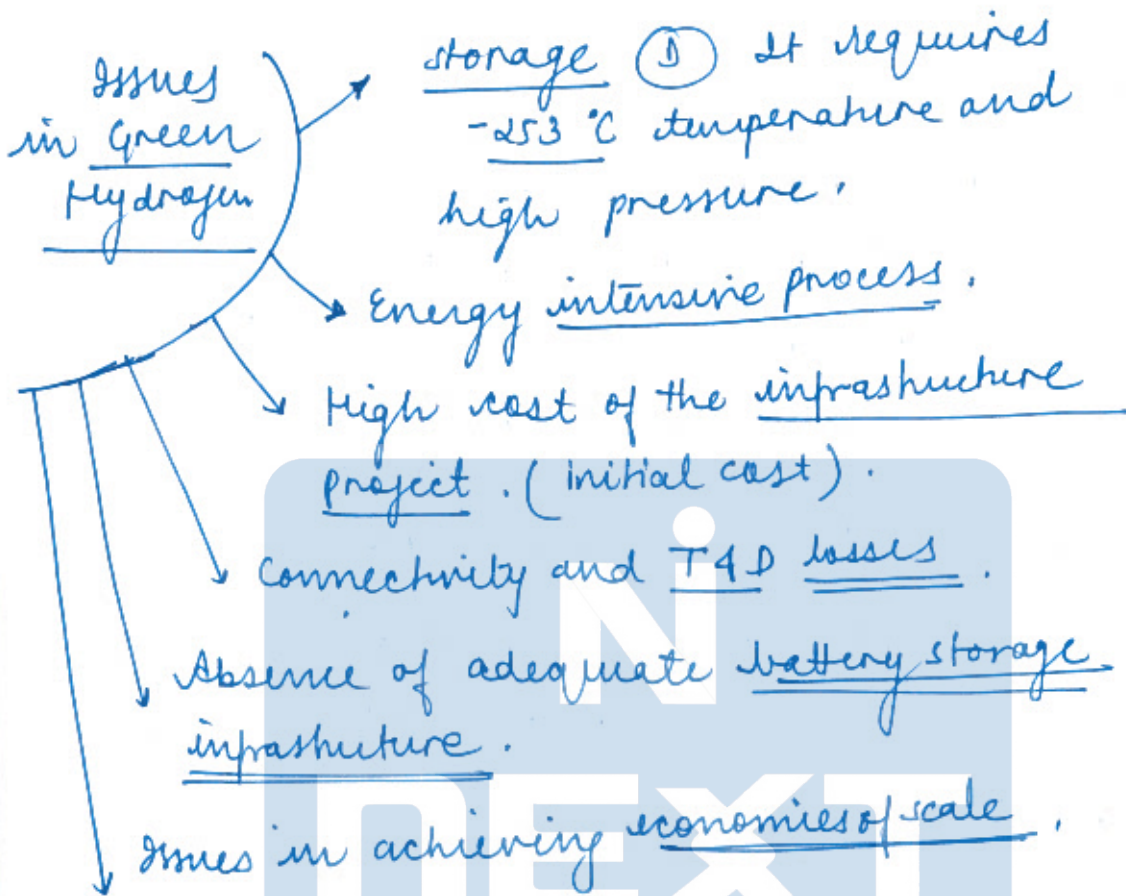 Issues
in Green
Hydrogen
storage ① It requires
-253 °C temperature and
high pressure.
Energy intensive process.
High cost of the infrastructure
project. (initial cost).
Connectivity and T&D losses.
Absence of adequate battery storage
infrastuture.
Issues in achieving economies of scale.
Ni
NEXT